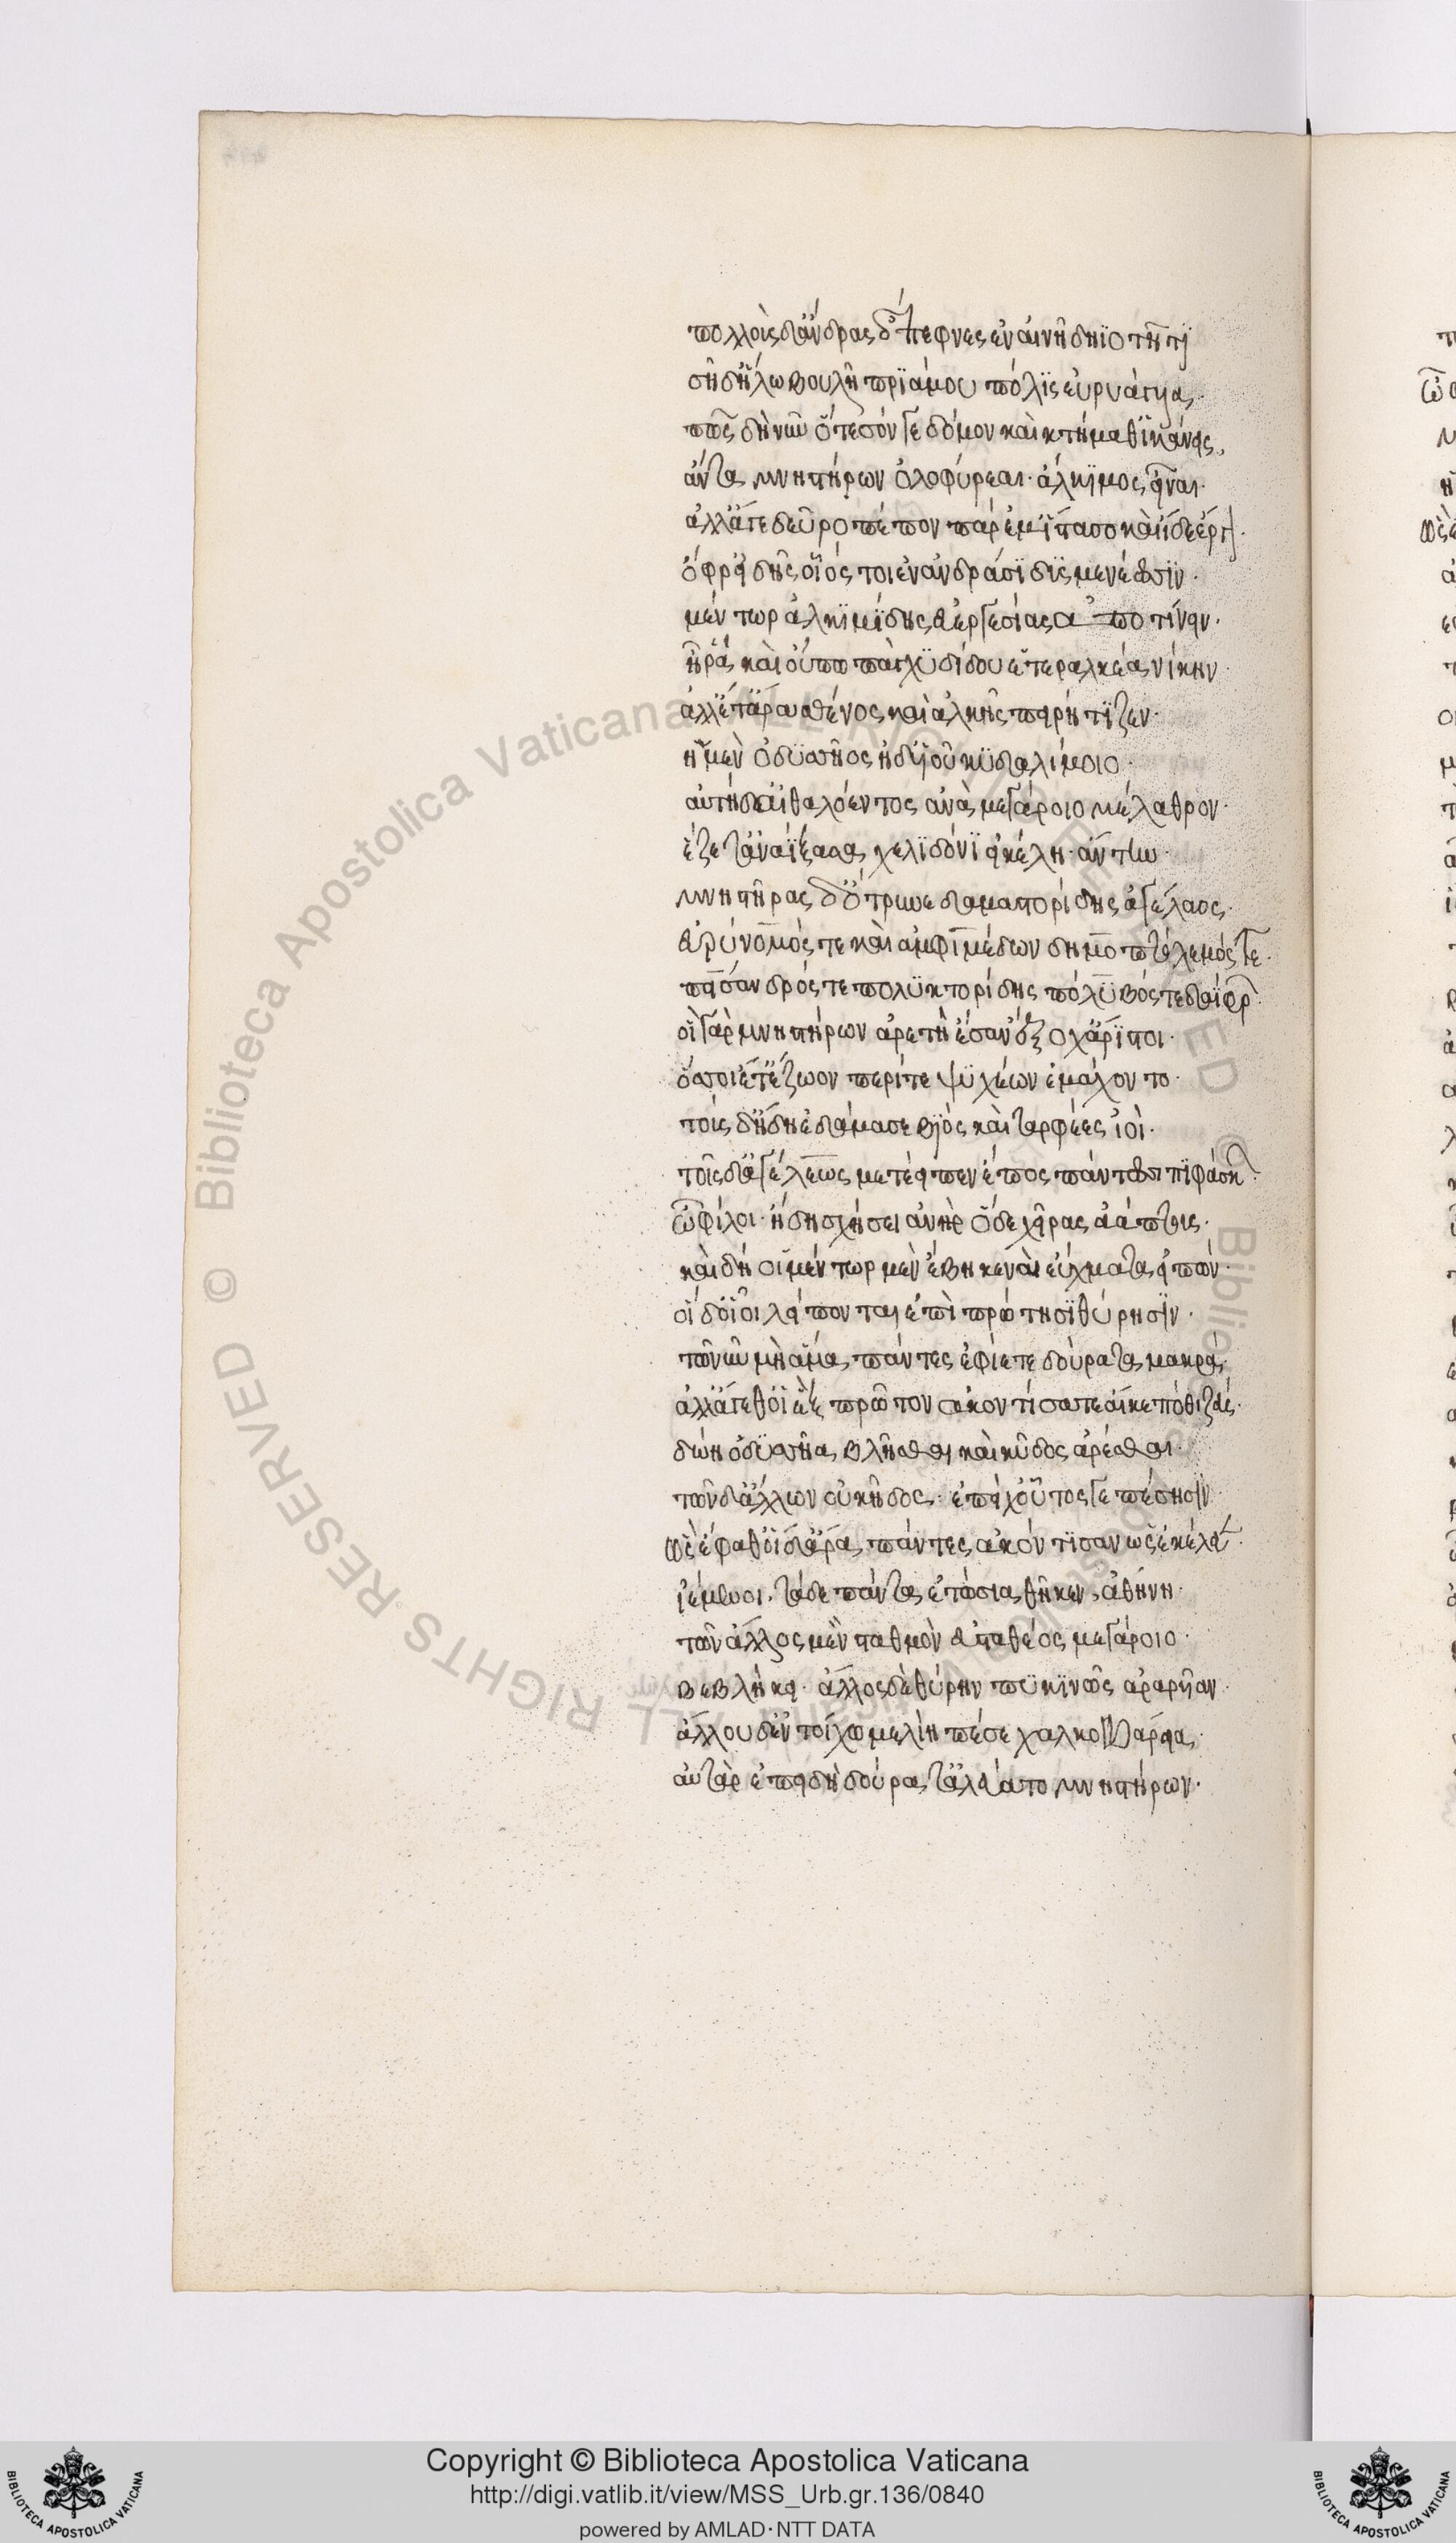 πολλοὺς δ' ἄνδρας ἔπεφνες ἐν αἰνῆ δηϊοτῆτι
σῆ δ' ἥλω βουλῆ πριάμου πόλις εὐρυάγυια.
πῶς δὴ νῦν ὅτε σόν γε δόμον καὶ κτήμαθ' ἱκάνεις.
ἄντα μνηστήρων ὀλοφύρεαι· ἄλκιμος εἶναι.
ἀλλ' ἄγε δεῦρο πέπον παρ' ἔμ' ἵστασο καὶ ἴδε ἔργον.
ὄφρ' εἰδῆς οἷός τοι ἐν ἀνδράσι δυσμενέεσσιν.
μέντωρ ἀλκιμίδης εὐεργεσίας ἀποτίνειν.
ἦ ῥα καὶ οὔπω πάγχυ δίδου ἑτεραλκέα νίκην
ἀλλ' ἔτ' ἄρα σθένος καὶ ἀλκῆς πειρήτιζεν.
ἠμὲν ὀδυσσῆος ἠδ' υἱοῦ κυδαλίμοιο.
αὐτὴ δ' αἰθαλόεντος ἀνὰ μεγάροιο μέλαθρον.
ἕζετ' ἀναΐξασα χελιδόνι εἰκέλη ἄντην.
μνηστῆρας δ' ὤτρυνε δαμαστορίδης ἀγέλαος.
εὐρύνομός τε καὶ ἀμφιμέδων δημοπτόλεμός τε.
πείσανδρός τε πολυκτορίδης πόλυβός τε δαΐφρων.
οἳ γὰρ μνηστήρων ἀρετῆ ἔσαν ἔξοχ' ἄριστοι.
ὅσσοι ἔτ' ἔζωον περί τε ψυχέων ἐμάχοντο.
τοὺς δ' ἤδη ἐδάμασε βιὸς καὶ ταρφέες ἰοί.
τοῖς δ' ἀγέλεως μετέειπεν ἔπος πάντεσσι πιφάσκων.
ὦ φίλοι· ἤδη σχήσει ἀνὴρ ὅδε χεῖρας ἀάπτους.
καὶ δή οἱ μέντωρ μὲν ἔβη κενὰ εὔχματα εἰπών.
οἱ δ' οἶοι λείπονται ἐπὶ πρώτησι θύρησιν.
τῶ νῦν μὴ ἅμα πάντες ἐφίετε δούρατα μακρά.
ἀλλ' ἄγεθ' οἱ ἓξ πρῶτον ἀκοντίσατε αἴ κέ ποθι ζεύς.
δώη ὀδυσσῆα βλῆσθαι καὶ κῦδος ἀρέσθαι.
τῶν δ' ἄλλων οὐ κῆδος· ἐπεί χ' οὗτός γε πέσησιν.
ὣς ἔφαθ' οἱ δ' ἄρα πάντες ἀκόντισαν ὡς ἐκέλευεν.
ἱέμενοι· τάδε πάντα ἐτώσια θῆκεν ἀθήνη.
τῶν ἄλλος μὲν σταθμὸν ἐϋσταθέος μεγάροιο.
βεβλήκει· ἄλλος δὲ θύρην πυκινῶς ἀραρυῖαν.
ἄλλου δ' ἐν τοίχω μελίη πέσε χαλκοβάρεια.
αὐτὰρ ἐπειδὴ δούρατ' ἀλεύαντο μνηστήρων.
Copyright © Biblioteca Apostolica Vaticana
http://digi.vatlib.it/view/MSS_Urb.gr.136/0840
powered by AMLAD·NTT DATA